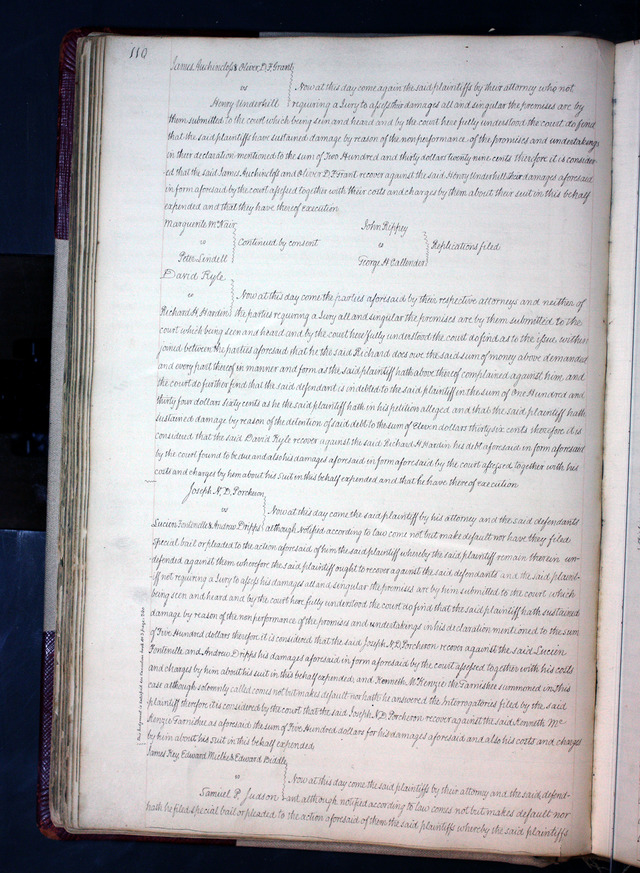 110
James Auchincloss & Oliver D. F. Grant
vs
Henry Underhill
Now at this day come again the said plaintiffs by their attorney who not
requiring a Jury to assess their damages all and singular the premises are by
them submitted to the court which being seen and heard and by the court here fully understood the court do find
that the said plaintiffs have sustained damage by reason of the non performance of the promises and undertakings
in their declaration mentioned to the sum of Two Hundred and thirty dollars twenty nine cents Therefore it is consider-
ed that the said James Auchincloss and Oliver D. F. Grant recover against the said Henry Underhill their damages aforesaid
in form aforesaid by the court assessed together with their costs and charges by them about their suit in this behalf
expended and that they have thereof execution
Marguerite McNair
vs
Peter Lindell
Continued by consent
John Rippey
vs
George H. Callender
Replications filed
David Kyle
vs
Richard H. Hardin
Now at this day come the parties aforesaid by their respective attorneys and neither of
the parties requiring a Jury all and singular the premises are by them submitted to the
court which being seen and heard and by the court here fully understood the court do find as to the issue within
joined between the parties aforesaid that he the said Richard does owe the said sum of money above demanded
and every part thereof in manner and form as the said plaintiff hath above thereof complained against him, and
the court do further find that the said defendant is indebted to the said plaintiff in the sum of One Hundred and
thirty four dollars Sixty cents as he the said plaintiff hath in his petition alleged and that the said plaintiff hath
sustained damage by reason of the detention of said debt to the sum of Eleven dollars thirty six cents therefore it is
considered that the said David Kyle recover against the said Richard H. Hardin his debt aforesaid in form aforesaid
by the court found to be due and also his damages aforesaid in form aforesaid by the court assessed together with his
costs and charges by him about his Suit in this behalf expended and that he have thereof execution
Joseph N. D. Porcheron
vs
Lucien Fontenelle & Andrew Dripps
Now at this day come the said plaintiff by his attorney and the said defendants
although Notified according to law come not but make default nor have they filed
Special bail or pleaded to the action aforesaid of him the said plaintiff whereby the said plaintiff remain therein un-
defended against them wherefore the said plaintiff ought to recover against the said defendants and the said plaint-
iff not requiring a Jury to assess his damages all and singular the premises are by him submitted to the court which
being seen and heard and by the court here fully understood the court do find that the said plaintiff hath sustained
damage by reason of the non performance of the promises and undertakings in his declaration mentioned to the sum
of Five Hundred dollars therefore it is considered that the said Joseph N. D. Porcheron recover against the said Lucien
Fontenelle and Andrew Dripps his damages aforesaid in form aforesaid by the court assessed together with his costs
and charges by him about his suit in this behalf expended, and Kenneth McKenzie the Garnishee summoned in this
case although solemnly called comes not but makes default nor hath he answered the Interrogatories filed by the said
plaintiff therefore it is considered by the court that the said Joseph N. D. Porcheron recover against the said Kenneth Mc
Kenzie Garnishee as aforesaid the sum of Five Hundred dollars for his damages aforesaid and also his costs and charges
by him about his Suit in this behalf expended
James Key, Edward Mielke & Edward Biddle
vs
Samuel P. Judson
Now at this day come the said plaintiffs by their attorney and the said defend-
ant although notified according to law comes not but makes default nor
hath he filed special bail or pleaded to the action aforesaid of them the said plaintiffs whereby the said plaintiffs